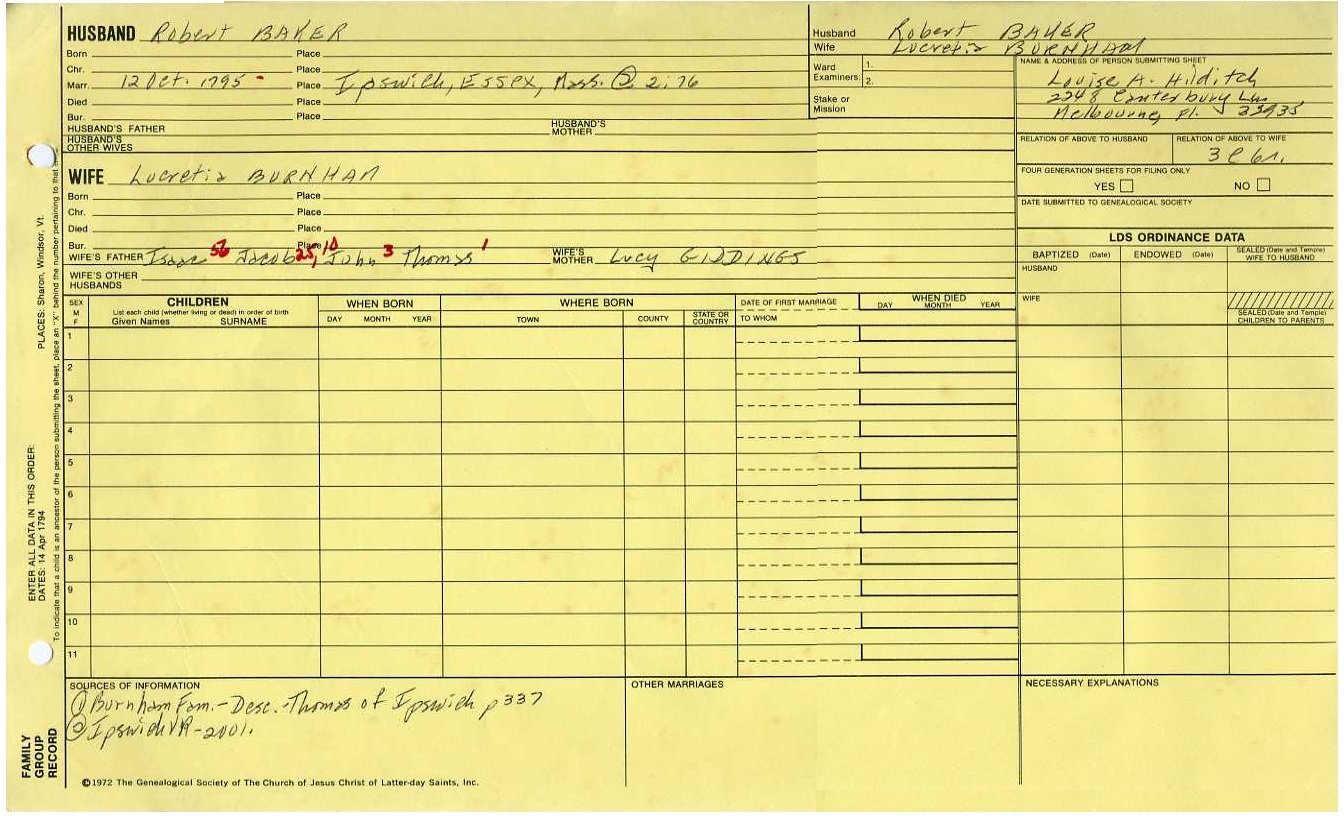 HUSBAND Robert BAKER
Born Place
Chr. Place
Marr. 12 Oct. 1795 - Place Ipswich, ESSEX, Mass. @ 2:76
Died Place
Bur. Place
HUSBAND'S FATHER HUSBAND'S MOTHER
HUSBAND'S OTHER WIVES
WIFE Lucretia BURNHAM
Born Place
Chr. Place
Died Place
Bur. Place
WIFE'S FATHER Isaac 56 Jacob 25, 10 John 3 Thomas 1 WIFE'S MOTHER Lucy GIDDINGS
WIFE'S OTHER HUSBANDS
Husband Robert BAKER
Wife Lucretia BURNHAM
Ward 1.
Examiners: 2.
Stake or
Mission
NAME & ADDRESS OF PERSON SUBMITTING SHEET
Louise A. Hilditch
2248 Canterbury Ln
Melbourne, Fl. 32935
RELATION OF ABOVE TO HUSBAND RELATION OF ABOVE TO WIFE
3C6r.
FOUR GENERATION SHEETS FOR FILING ONLY
YES NO
DATE SUBMITTED TO GENEALOGICAL SOCIETY
LDS ORDINANCE DATA
BAPTIZED (Date) ENDOWED (Date) SEALED (Date and Temple) WIFE TO HUSBAND
HUSBAND
WIFE
SEALED (Date and Temple) CHILDREN TO PARENTS
SEX M F
CHILDREN
List each child (whether living or dead) in order of birth
Given Names SURNAME
WHEN BORN
DAY MONTH YEAR
WHERE BORN
TOWN COUNTY STATE OR COUNTRY
DATE OF FIRST MARRIAGE
TO WHOM
WHEN DIED
DAY MONTH YEAR
1
2
3
4
5
6
7
8
9
10
11
SOURCES OF INFORMATION
① Burnham Fam.-Desc.-Thomas of Ipswich p 337
② Ipswich VR-2001.
OTHER MARRIAGES
NECESSARY EXPLANATIONS
©1972 The Genealogical Society of The Church of Jesus Christ of Latter-day Saints, Inc.
FAMILY
GROUP
RECORD
ENTER ALL DATA IN THIS ORDER:
DATES: 14 Apr 1794 PLACES: Sharon, Windsor, Vt.
To indicate that a child is an ancestor of the person submitting the sheet, place an "X" behind the number pertaining to that